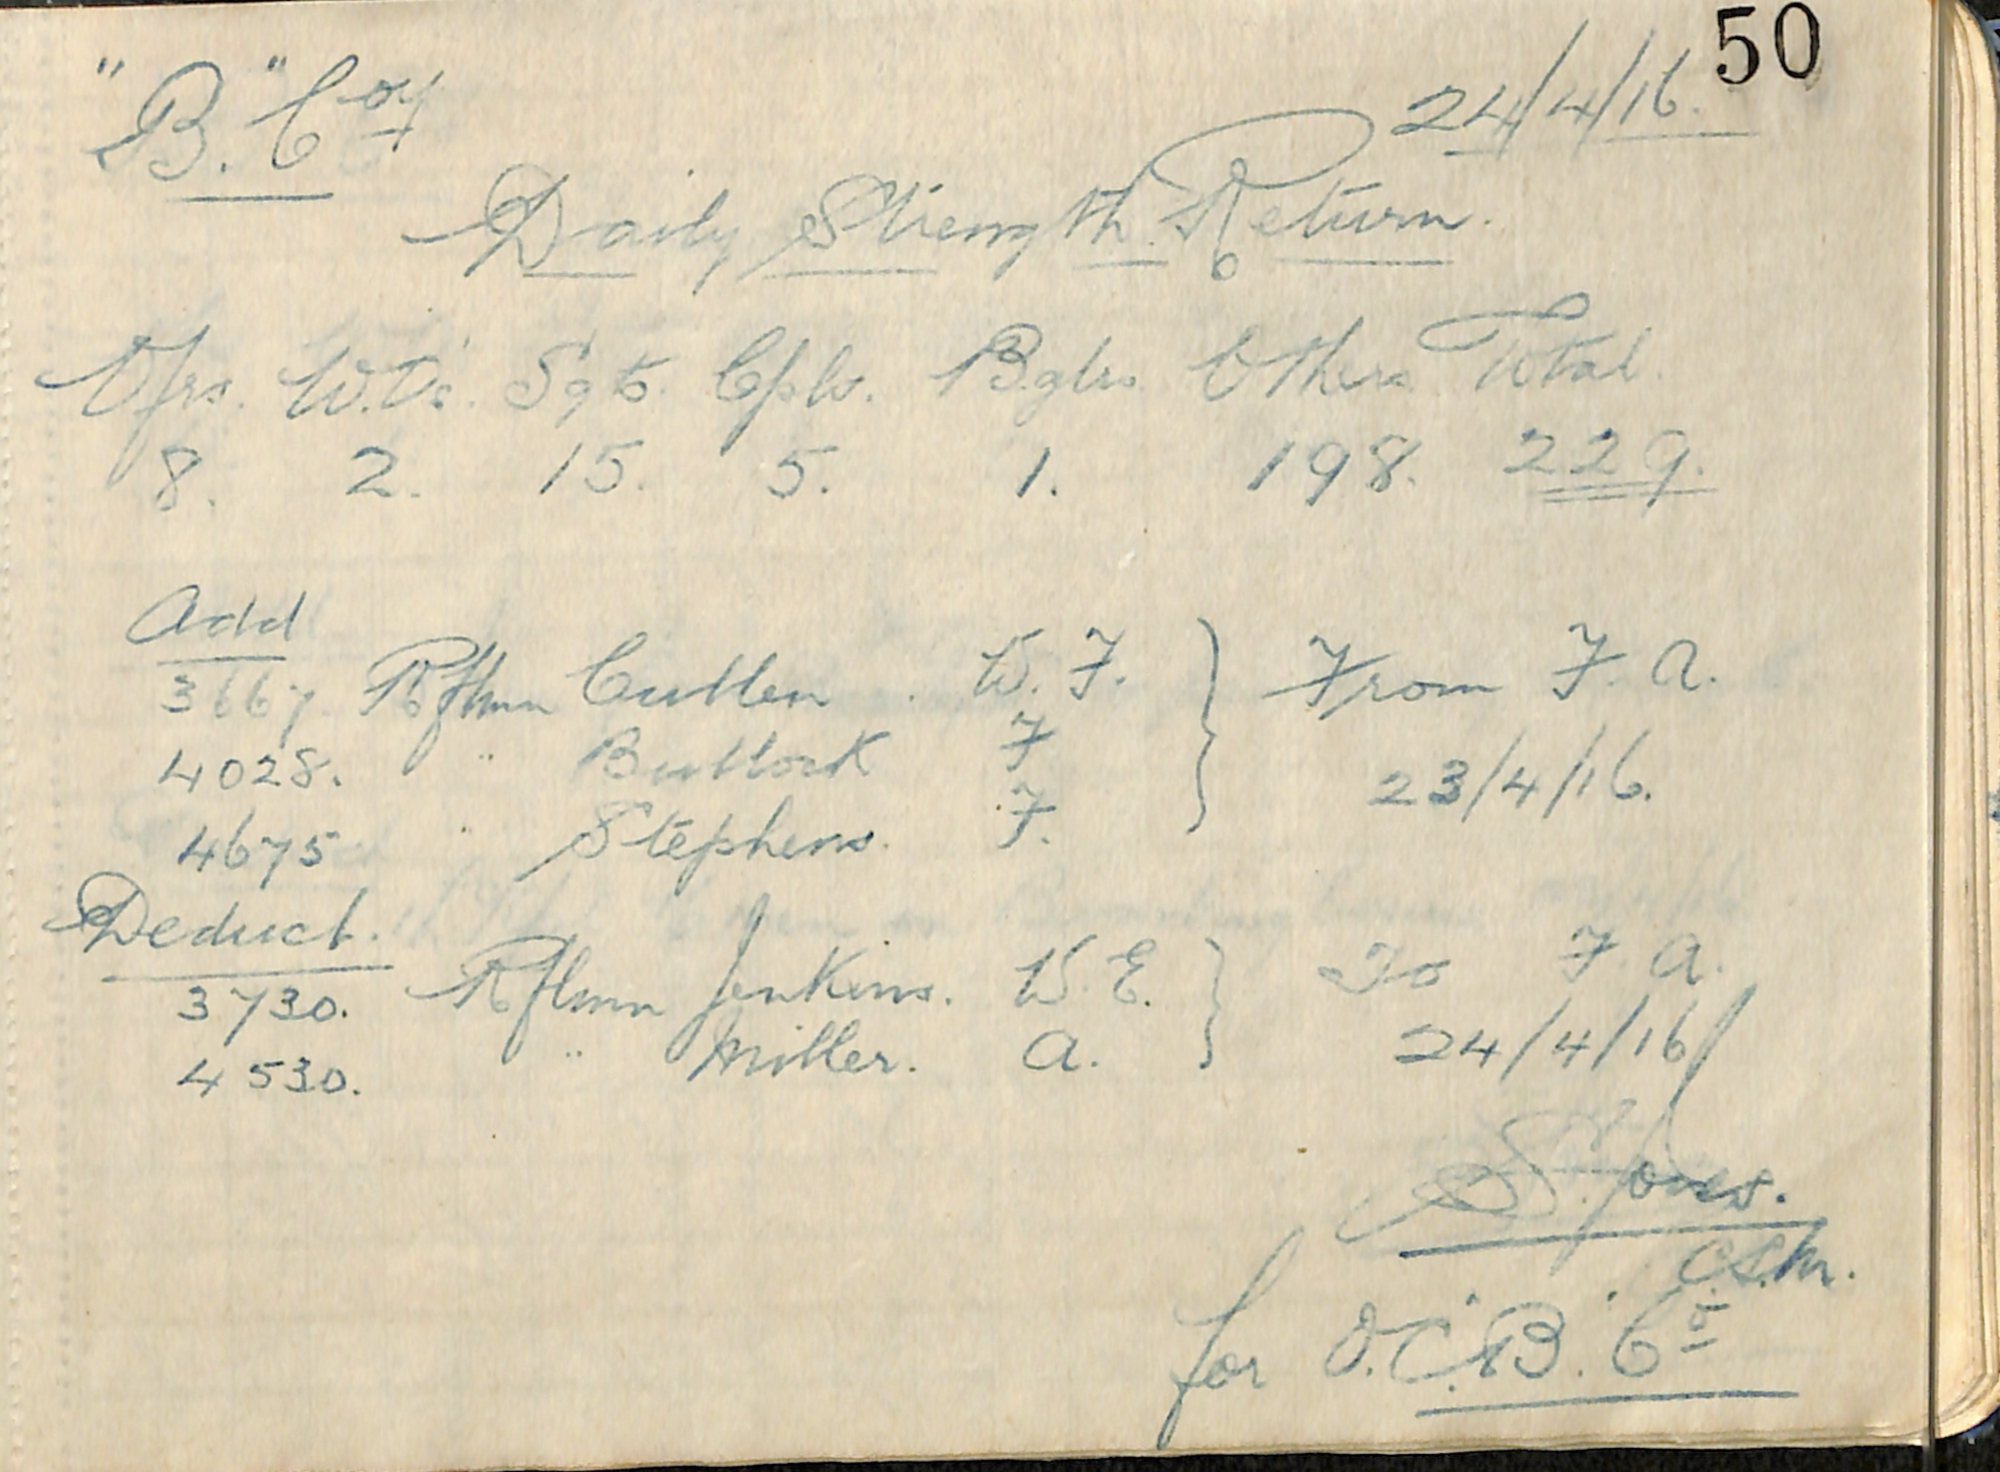 50
"B." Coy
24/4/16.
Daily Strength Return.
Ofrs. W.O's. Sgts. Cpls. Bglrs. Others Total.
8. 2. 15. 5. 1. 198. 229.
Add
3667 Rflmn Cullen. W. F. } From F. A.
4028. " Bullock F
23/4/16.
4675 " Stephens. F.
Deduct.
3730. Rflmn Jenkins. W. E. } To F. A.
4530. " Miller. A. 24/4/16
S. Jones.
C.S.M.
for O.C. "B". Co